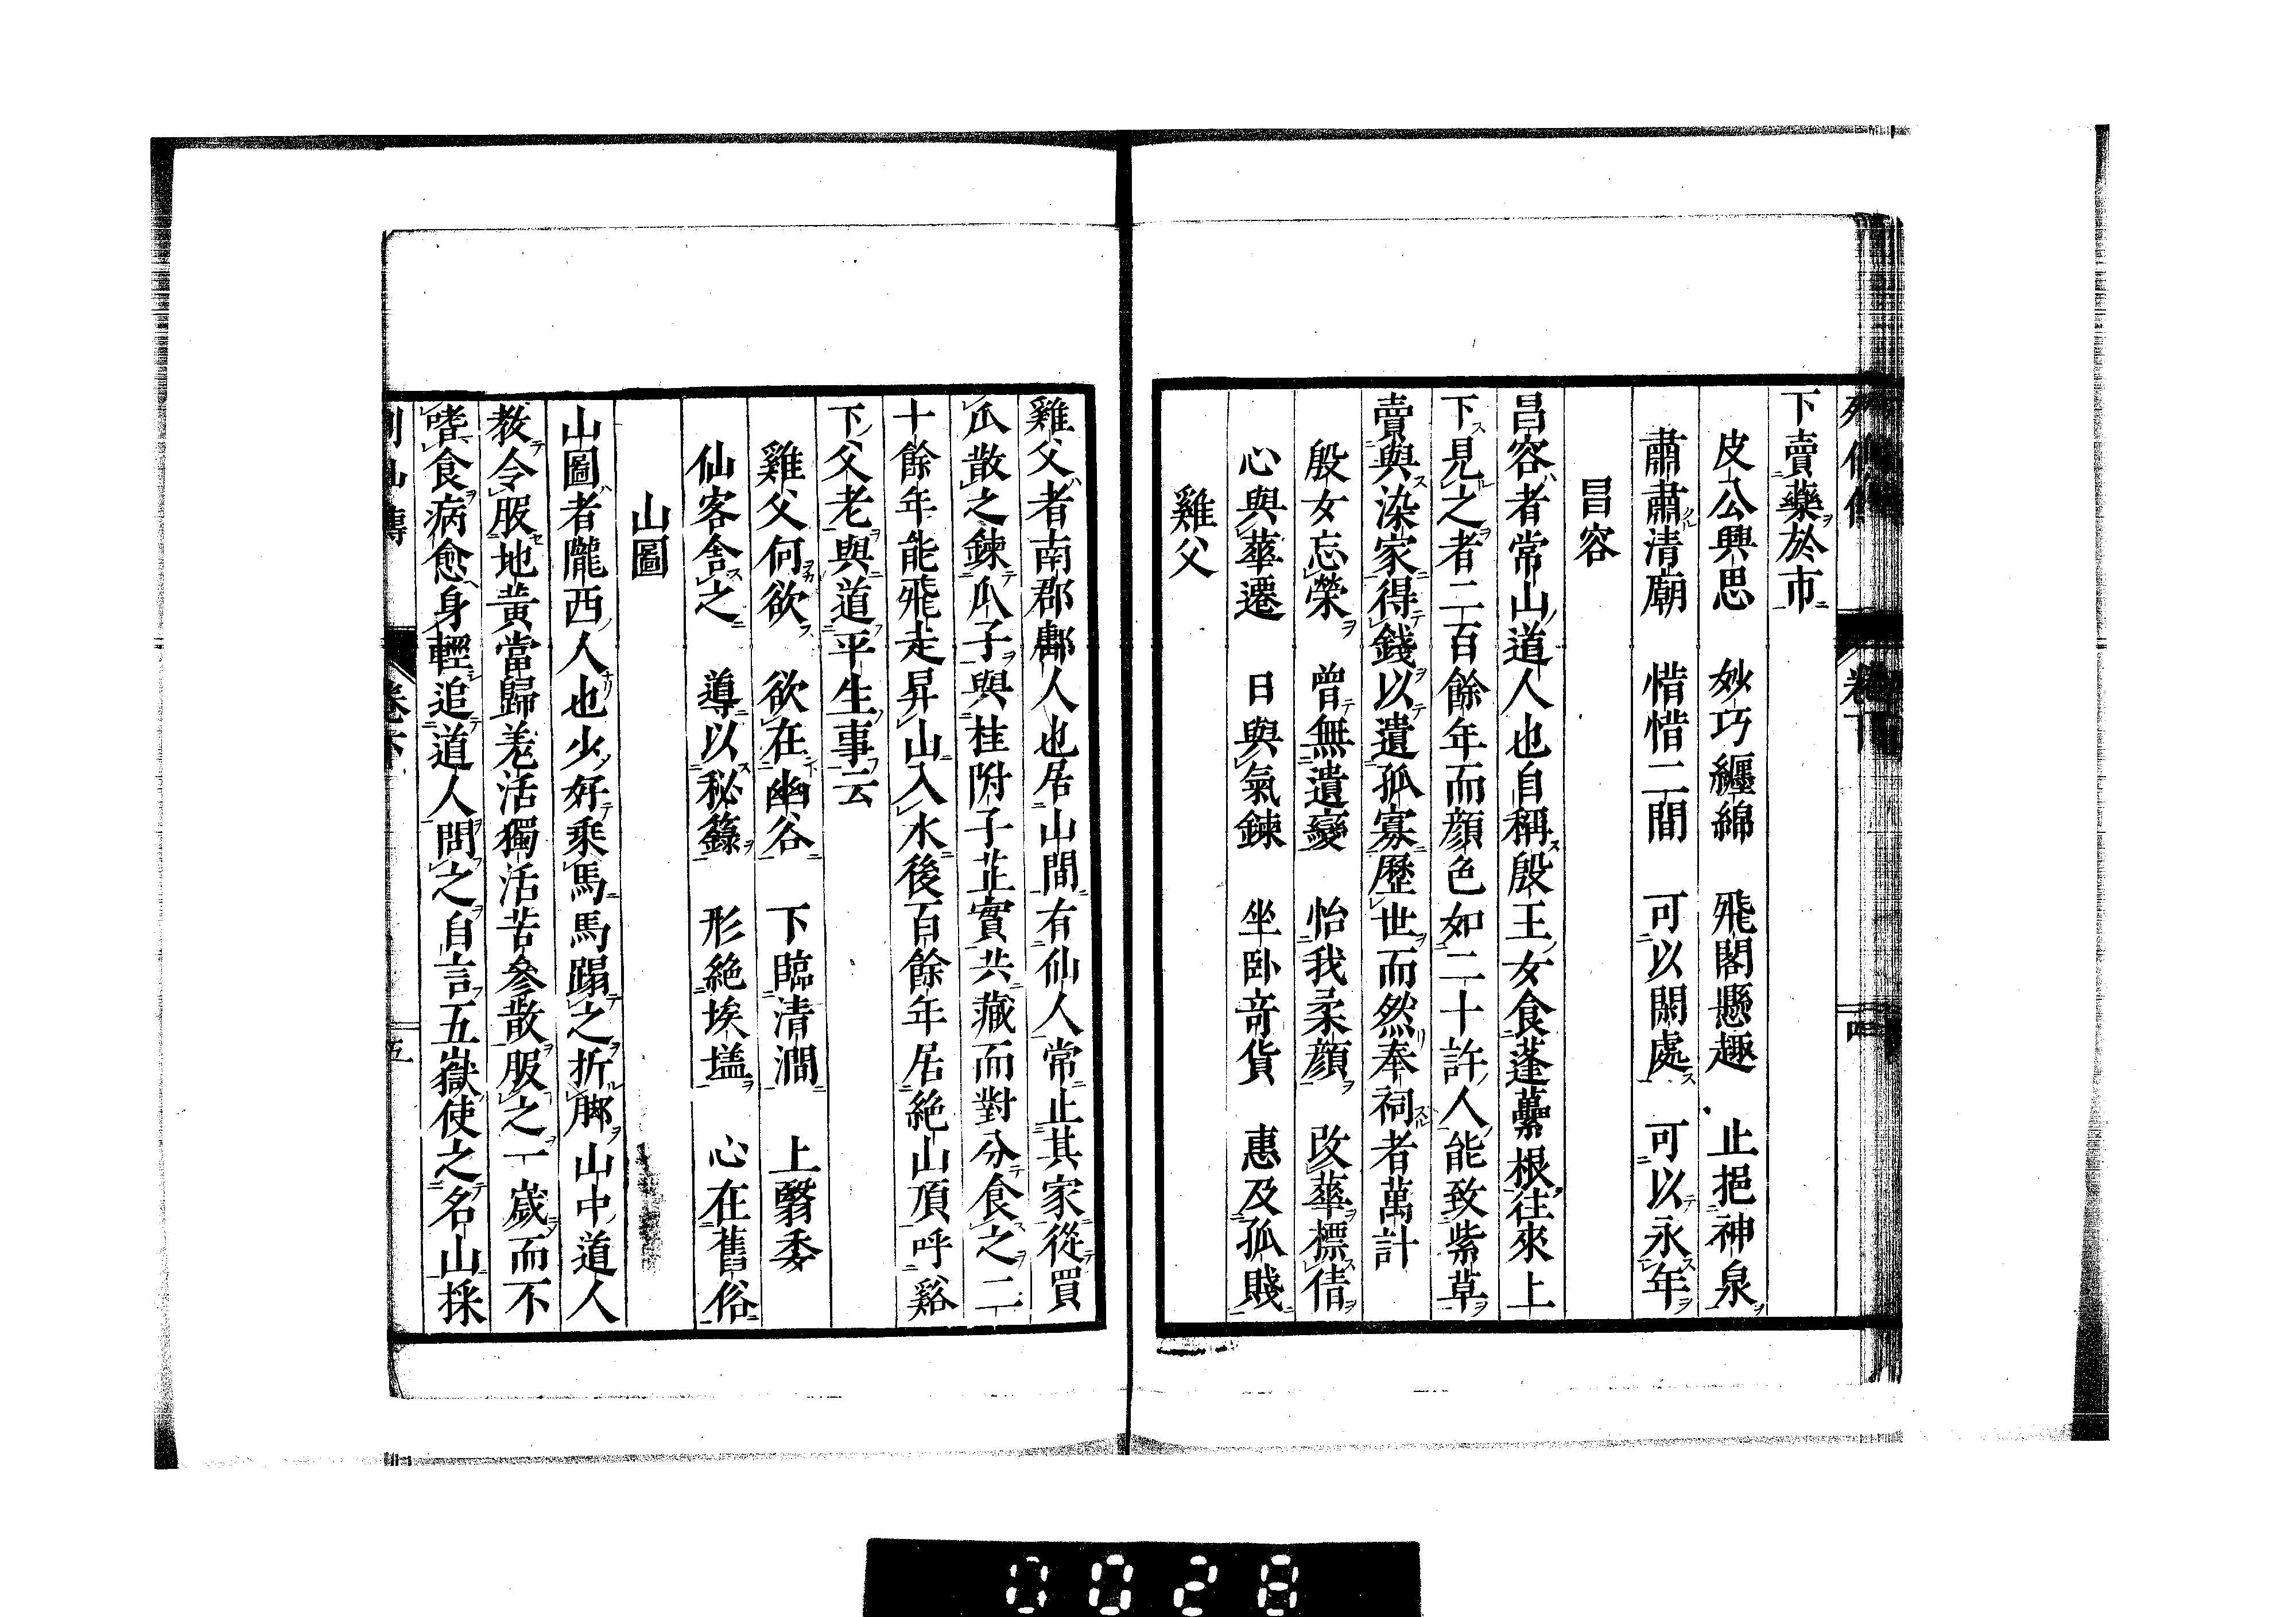 下賣藥於市
皮公興思　妙巧纏綿　飛閣懸趣　止挹神泉
肅肅清廟　愔愔二間　可以閑處　可以永年
昌容
昌容者常山道人也自稱殷王女食蓬虆根往來上
下見之者二百餘年而顏色如二十許人能致紫草
賣與染家得錢以遺孤寡歷世而然奉祠者萬計
殷女忘榮　曾無遺變　怡我柔顏　改華標倩
心與華遷　日與氣鍊　坐臥奇貨　惠及孤賤
雞父
雞父者南郡鄘人也居山間有仙人常止其家從買
瓜散之鍊瓜子與桂附子芷實共藏而對分食之二
十餘年能飛走昇山入水後百餘年居絕山頂呼谿
下父老與道平生事云
雞父何欲　欲在幽谷　下臨清澗　上翳委
仙客舍之　導以秘籙　形絕埃壒　心在舊俗
山圖
山圖者隴西人也少好乘馬馬蹋之折腳山中道人
敎令服地黃當歸羌活獨活苦參散服之一歲而不
嗜食病愈身輕追道人問之自言五嶽使之名山採
卷下
五
四
0028